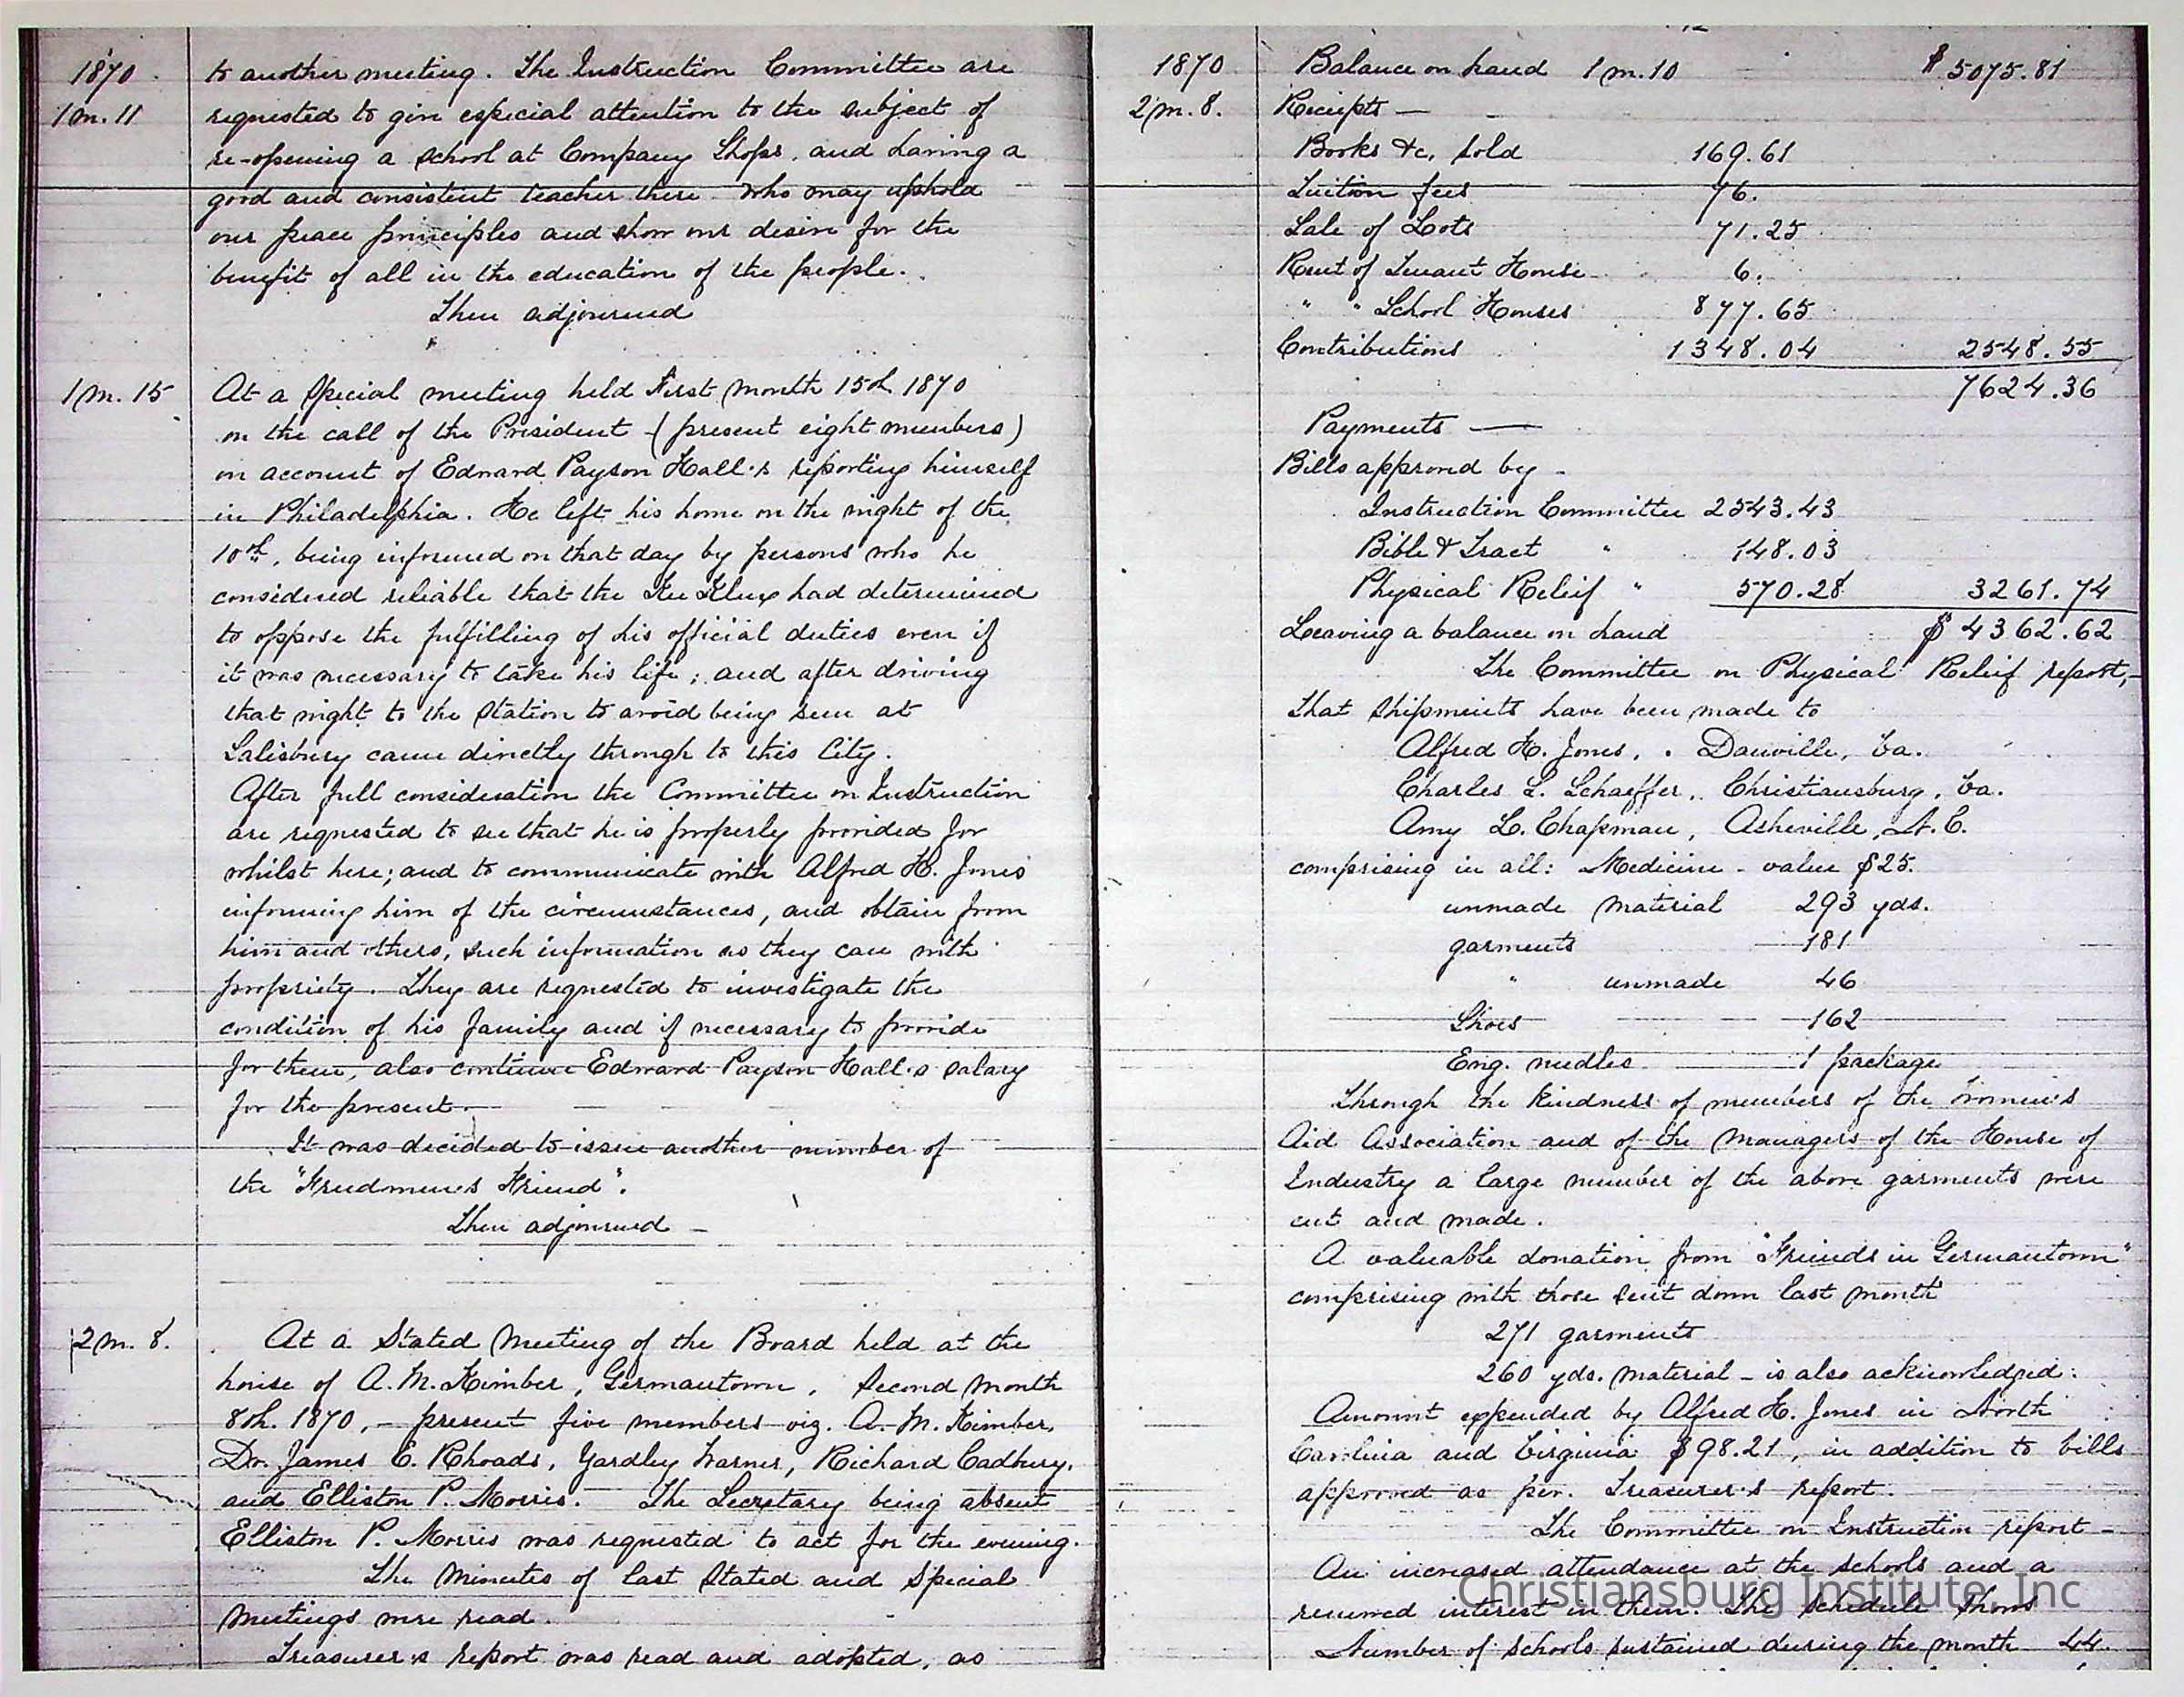 1870. to another meeting. The Instruction Committee are
1 m. 11 requested to give especial attention to the subject of
re-opening a school at Company Shops, and having a
good and consistent teacher there who may uphold
our peace principles and show our desire for the
benefit of all in the education of the people.
Then adjourned
1 m. 15 At a Special meeting held First month 15th 1870
on the call of the President - (present eight members)
on account of Edward Payson Hall's reporting himself
in Philadelphia. He left his home on the night of the
10th, being informed on that day by persons who he
considered reliable that the Ku Klux had determined
to oppose the fulfilling of his official duties even if
it was necessary to take his life; and after driving
that night to the Station to avoid being seen at
Salisbury came directly through to this City.
After full consideration the Committee on Instruction
are requested to see that he is properly provided for
whilst here; and to communicate with Alfred H. Jones
informing him of the circumstances, and obtain from
him and others, such information as they can with
propriety. They are requested to investigate the
condition of his family and if necessary to provide
for them, also continue Edward Payson Hall's salary
for the present.
It was decided to issue another number of
the "Freedmen's Friend".
Then adjourned -
2 m. 8. At a Stated Meeting of the Board held at the
house of A. M. Kimber, Germantown, Second Month
8th. 1870, - present five members viz. A. M. Kimber,
Dr. James E. Rhoads, Yardley Warner, Richard Cadbury,
and Elliston P. Morris. The Secretary being absent
Elliston P. Morris was requested to act for the evening.
The Minutes of last Stated and Special
Meetings were read.
Treasurer's Report was read and adopted, as
1870 Balance on hand 1 m. 10 $ 5075.81
2 m. 8. Receipts —
Books &c, sold 169.61
Tuition fees 76.
Sale of Lots 71.25
Rent of Tenant House 6.
" " School Houses 877.65
Contributions 1348.04 2548.55
7624.36
Payments —
Bills approved by -
Instruction Committee 2543.43
Bible & Tract " 148.03
Physical Relief " 570.28 3261.74
Leaving a balance on hand $ 4362.62
The Committee on Physical Relief report, -
That Shipments have been made to
Alfred H. Jones, . Danville, Va.
Charles S. Schaeffer, Christiansburg, Va.
Amy L. Chapman, Asheville, N. C.
comprising in all: Medicine - value $25.
unmade material 293 yds.
garments 181
" unmade 46
Shoes 162
Eng. needles 1 package
Through the kindness of members of the Women's
Aid Association and of the Managers of the House of
Industry a large number of the above garments were
cut and made.
A valuable donation from "Friends in Germantown"
comprising with those sent down last month
271 garments
260 yds. material - is also acknowledged.
Amount expended by Alfred H. Jones in North
Carolina and Virginia $98.21, in addition to bills
approved as per. Treasurer's report.
The Committee on Instruction report -
An increased attendance at the schools and a
renewed interest in them. The schedule shows
Number of Schools sustained during the month 44.
Christiansburg Institute, Inc